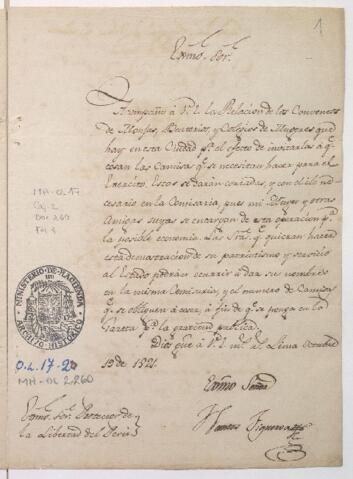 1
Exmo. Sor.
Acompaño á V.E. la Relacion de los Conventos
de Monjas, Beaterios, y Colegios de Mugeres que
hay en esta Ciudad pa. el efecto de invitarlas á q.
cosan las Camisas qe. se necesitan hacer para el
Exercito. Estas se darán cortadas, y con el ilo ne-
cesario en la Comisaria, pues mi Muger y otras
Amigas suyas se encargan de esta operacion pa.
la posible economia. Las Sras. qe. quieran hacer
esta demostracion de su patriotismo y servicio
al Estado podrán ocurrir á dar sus nombres
en la misma Comisaria, y el numero de Camisas
qe. se obliguen á coser, á fin de qe. se ponga en la
Gazeta pa. la gratitud publica.
Dios gue. á V.E. ms. as. Lima Octubre
19 de 1821.
Exmo Señor
Santos Figueroa
Exmo. Sor. Protector de
la Libertad del Perú
MH-OL 17
Caj. 2
Doc 260
MINISTERIO DE HACIENDA
ARCHIVO HISTORICO
O.L. 17-2
MH-OL 2.260